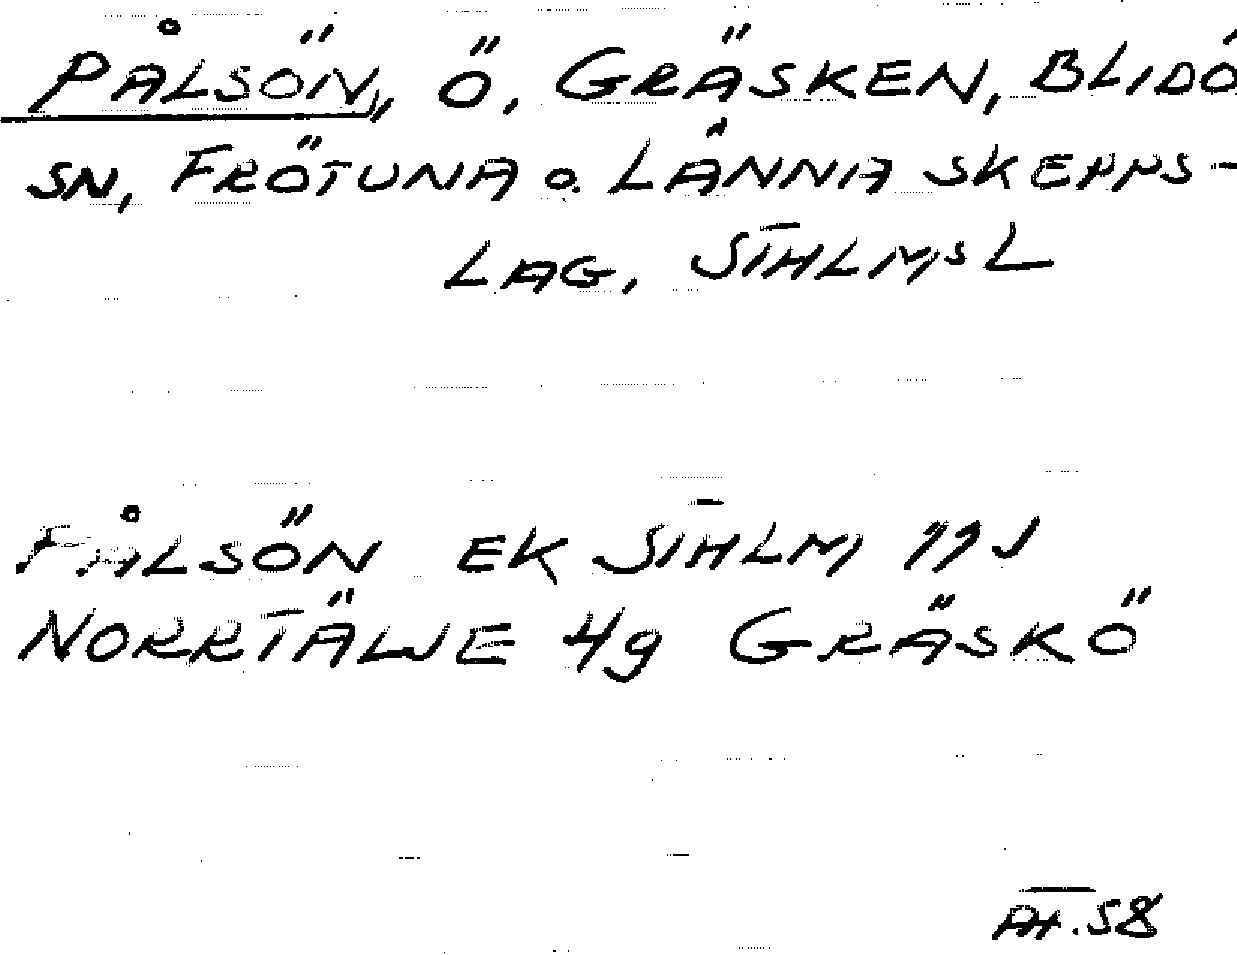 PÅLSÖN, Ö, GRÄSKEN, BLIDÖ
SN, FRÖTUNA o. LÄNNA SKEPPS-
LAG, STHLMS L
PÅLSÖN EK STHLM 11J
NORRTÄLJE 4g GRÄSKÖ